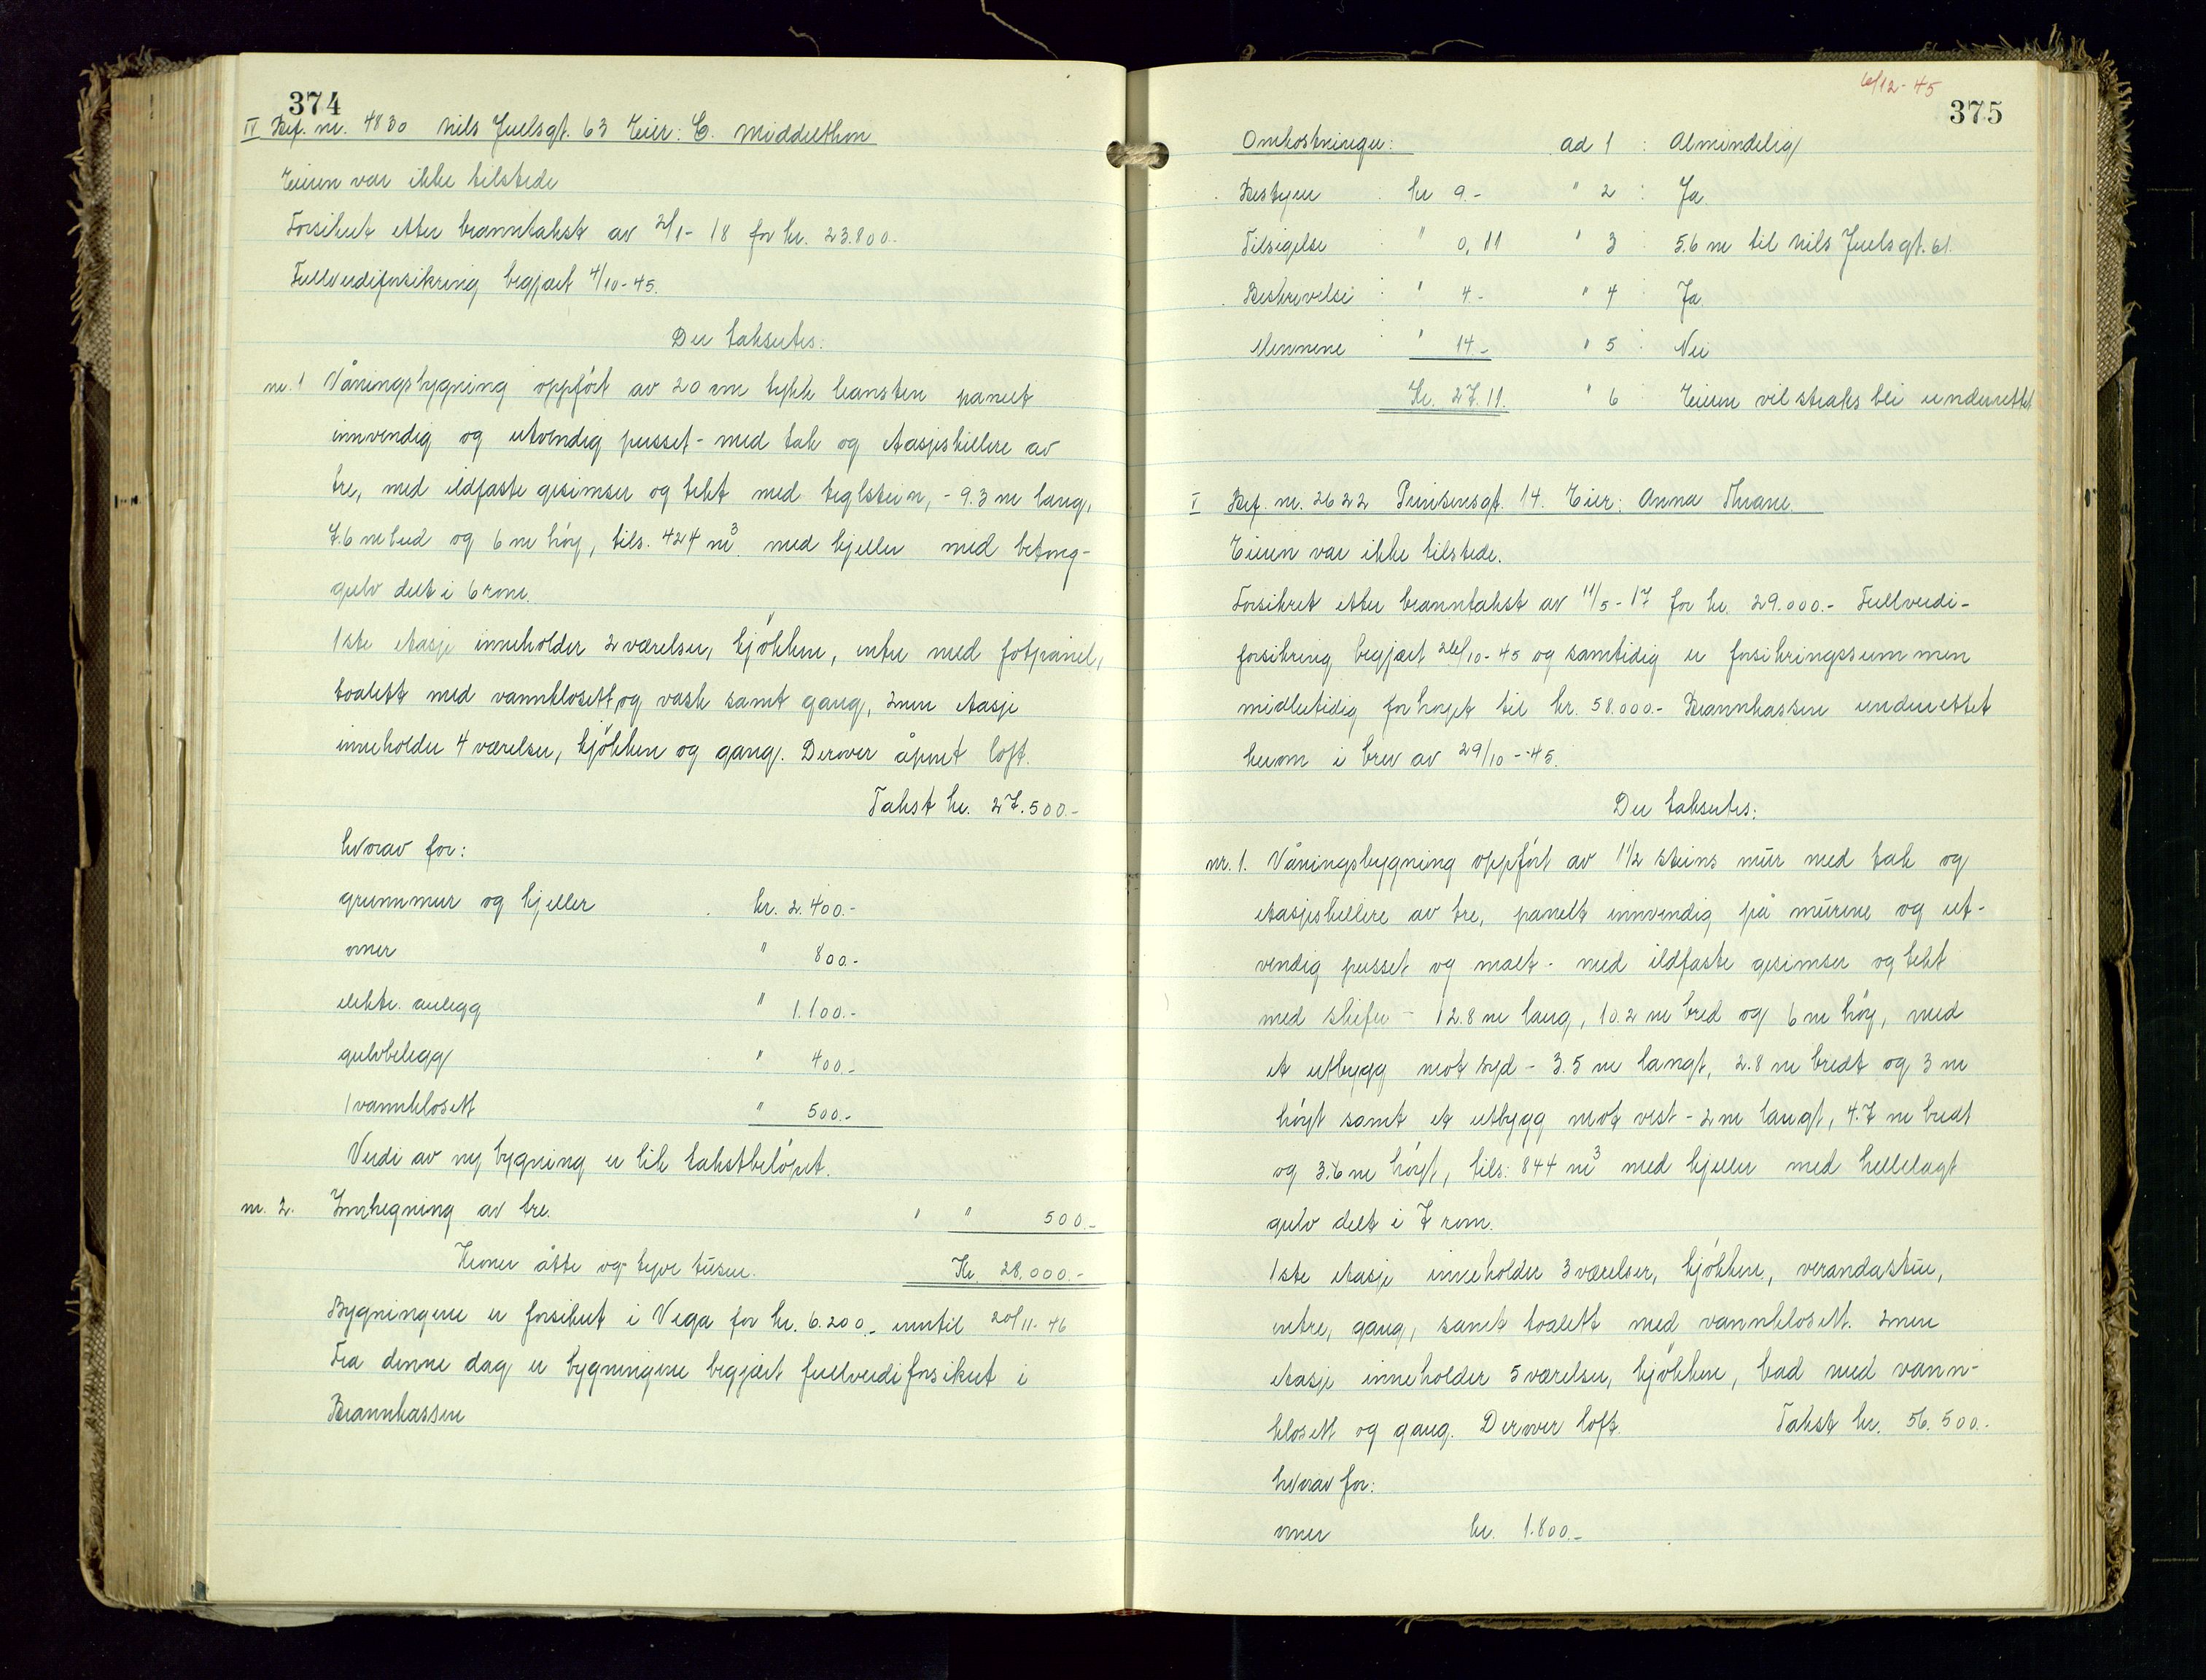 374
IV Bef. nr. 4830 Nils Juelsgt. 63 Eier: C. Middelthon
Eieren var ikke tilstede
Forsikret etter branntakst av 21/1-18 for kr. 23.800.-
Fullverdiforsikring begjært 4/10-45.
Der takseres:
nr. 1 Våningsbygning oppført av 20 cm tykk leansten panelt
innvendig og utvendig pusset - med tak og etasjeskillere av
tre, med ildfaste gesimser og tekt med teglstein, - 9.3 m lang,
7.6 m bred og 6 m høy, tils. 424 m³. med kjeller med betong-
gulv delt i 6 rom.
1ste etasje inneholder 2 værelser, kjøkken, entre med fotpanel,
toalett med vannklosett og vask samt gang, 2nen etasje
inneholder 4 værelser, kjøkken og gang. Derover åpent loft.
Takst kr. 27.500.-
hvorav for:
grunnmur og kjeller kr. 2.400.-
ovner " 800.-
elektr. anlegg " 1.100.-
gulvbelegg " 400.-
1 vannklosett " 500.-
Verdi av ny bygning er lik takstbeløpet.
nr. 2. Innhegning av tre. " " 500.-
Kroner åtte og tyve tusen. Kr. 28.000.-
Bygningene er forsikret i Vega for kr. 6.200.- inntil 20/11-46
Fra denne dag er bygningene begjært fullverdiforsikret i
Brannkassen
6/12-45
375
Omkostninger: ad 1 : Almindelig
Bestyrer : kr 9.- " 2 : Ja
Tilsigelse : " 0,11 " 3 : 5.6 m til Nils Juelsgt. 61.
Beskrivelse : " 4.- " 4 : Ja
Mennene : " 14.- " 5 : Nei
Kr. 27.11. " 6 Eieren vil straks bli underrettet
V Bef. nr. 2622 Prinsensgt. 14. Eier: Anna Thrane.
Eieren var ikke tilstede.
Forsikret etter branntakst av 11/5-17 for kr. 29.000.- Fullverdi-
forsikring begjært 26/10-45 og samtidig er forsikringssummen
midlertidig forhøyet til kr. 58.000.- Brannkassen underrettet
herom i brev av 29/10-45.
Der takseres:
nr. 1. Våningsbygning oppført av 1 1/2 steins mur med tak og
etasjeskillere av tre, panelt innvendig på murene og ut-
vendig pusset og malt - med ildfaste gesimser og tekt
med skifer - 12.8 m lang, 10.2 m bred og 6 m høy, med
et utbygg mot syd - 3.5 m langt, 2.8 m bredt og 3 m
høyt samt et utbygg mot vest - 2 m langt, 4.7 m bredt
og 3.6 m høyt, tils: 844 m³ med kjeller med hellelagt
gulv delt i 7 rom.
1ste etasje inneholder 3 værelser, kjøkken, verandastue,
entre, gang, samt toalett med vannklosett. 2nen
etasje inneholder 5 værelser, kjøkken, bad med vann-
klosett og gang. Derover loft. Takst kr. 56.500.-
hvorav for:
ovner kr. 1.800.-